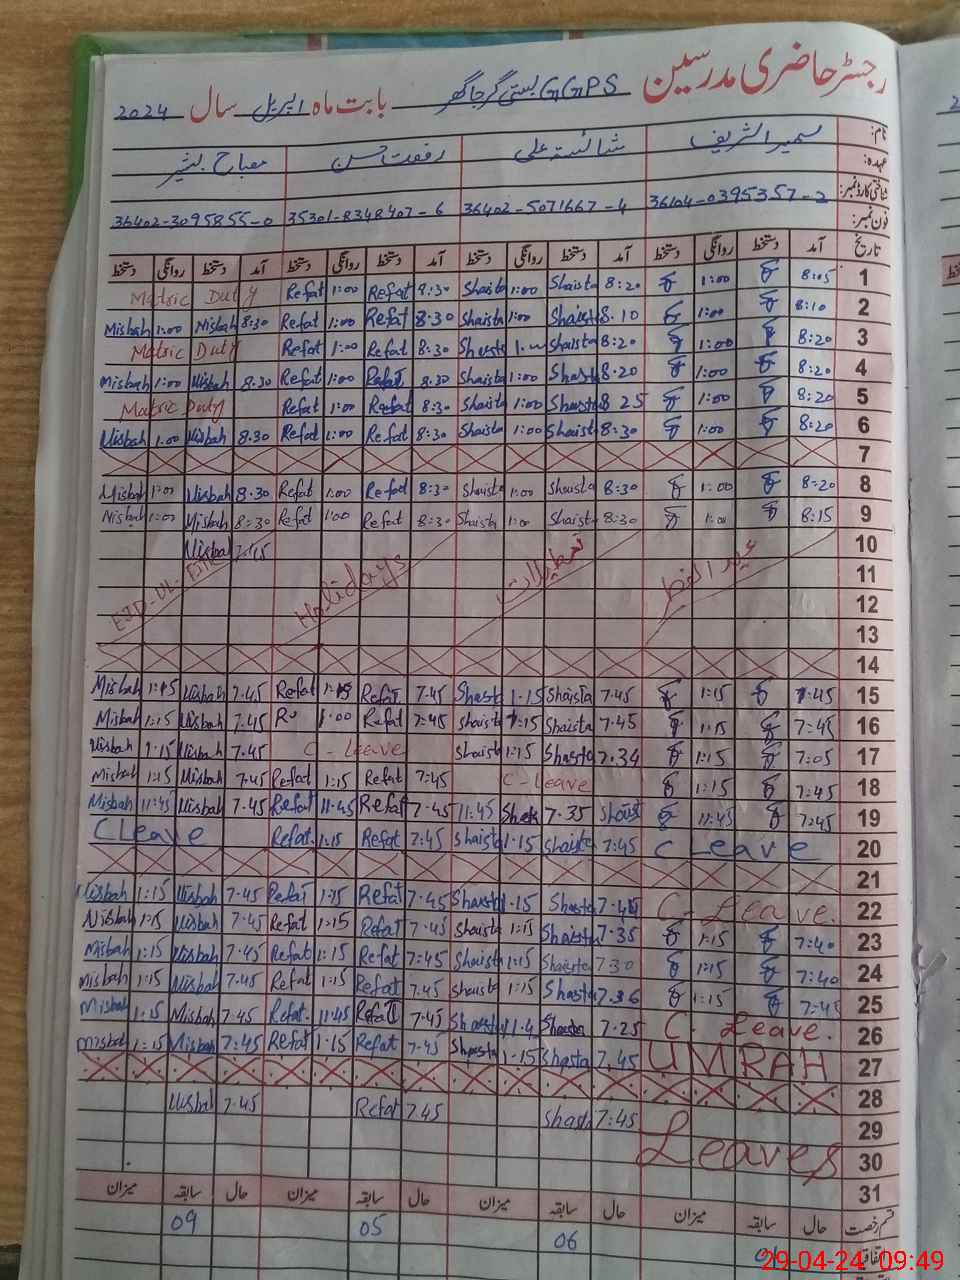 رجسٹر حاضری مدرسین GGPS بستی گرجا گھر بابت ماہ اپریل سال 2024
نام: سمیرا الشریف شائستہ علی رفعت حسن مصباح بشیر
عہدہ:
شناختی کارڈ نمبر: 36104-0395357-2 36402-5071667-4 35301-8348407-6 36402-3095855-0
فون نمبر:
تاریخ آمد دستخط روانگی دستخط آمد دستخط روانگی دستخط آمد دستخط روانگی دستخط آمد دستخط روانگی دستخط
Matric Duty Refat 1:00 Refat 8:30 Shaista 1:00 Shaista 8:20 1:00 8:05 1
Misbah 1:00 Misbah 8:30 Refat 1:00 Refat 8:30 Shaista 1:00 Shaista 8:10 1:00 8:10 2
Matric Duty Refat 1:00 Refat 8:30 Shaista Shaista 8:20 1:00 8:20 3
Misbah 1:00 Misbah 8:30 Refat 1:00 Refat 8:30 Shaista 1:00 Shaista 8:20 1:00 8:20 4
Matric Duty Refat 1:00 Refat 8:30 Shaista 1:00 Shaista 8 25 1:00 8:20 5
Misbah 1:00 Misbah 8:30 Refat 1:00 Refat 8:30 Shaista 1:00 Shaista 8:30 1:00 8:20 6
7
Misbah 1:00 Misbah 8:30 Refat 1:00 Refat 8:30 Shaista 1:00 Shaista 8:30 1:00 8:20 8
Misbah 1:00 Misbah 8:30 Refat 1:00 Refat 8:30 Shaista 1:00 Shaista 8:30 1:00 8:15 9
Misbah 10
EID-UL-FITR Holidays تعطیلات عید الفطر 11
12
13
14
Misbah 1:15 Misbah 7:45 Refat 1:15 Refat 7:45 Shaista 1:15 Shaista 7:45 1:15 7:45 15
Misbah 1:15 Misbah 7:45 1:00 Refat 7:45 Shaista 1:15 Shaista 7:45 1:15 7:45 16
Misbah 1:15 Misbah 7:45 C-Leave Shaista 1:15 Shaista 7:34 1:15 7:05 17
Misbah 1:15 Misbah 7:45 Refat 1:15 Refat 7:45 C-Leave 1:15 7:45 18
Misbah 11:45 Misbah 7:45 Refat 11:45 Refat 7:45 11:45 7:35 11:45 7:45 19
C Leave Refat 1:15 Refat 7:45 Shaista 1:15 Shaista 7:45 C Leave 20
21
Misbah 1:15 Misbah 7:45 Refat 1:15 Refat 7:45 Shaista 1:15 Shasta C-Leave. 22
Misbah 1:15 Misbah 7:45 Refat 1:15 Refat 7:45 Shaista 1:15 Shaista 7:35 1:15 7:40 23
Misbah 1:15 Misbah 7:45 Refat 1:15 Refat 7:45 Shaista 1:15 Shaista 7:30 1:15 7:40 24
Misbah 1:15 Misbah 7:45 Refat 1:15 Refat 7:45 Shaista 1:15 Shasta 7:36 1:15 25
Misbah 1:15 Misbah 7:45 Refat 11:45 Refat 7:45 Shaista Shaista 7:25 C-Leave. 26
Misbah 1:15 Misbah 7:45 Refat 1:15 Refat 7:45 Shasta 1:15 Shasta 7:45 UMRAH 27
28
Misbah 7:45 Refat 7:45 Shasta 7:45 Leaves 29
30
31
قسم رخصت حال سابقہ میزان حال سابقہ میزان حال سابقہ میزان حال سابقہ میزان
09 05 06
29-04-24 09:49